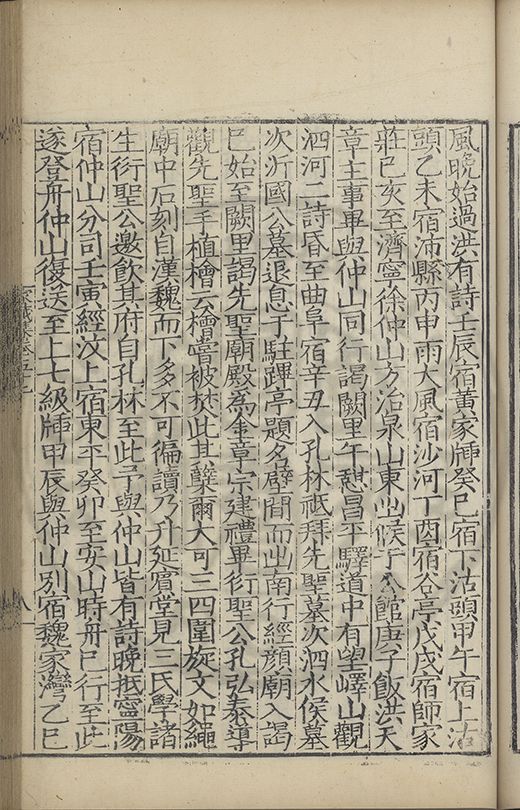 風晚始過洪有詩壬辰宿黃家牐癸巳宿下沽頭甲午宿上沽
頭乙未宿沛縣丙申雨大風宿沙河丁酉宿谷亭戊戌宿師家
莊巳亥至濟寧徐仲山方治泉山東出候于公館庚子飯洪天
章主事畢與仲山同行謁闕里午憩昌平驛道中有望嶧山觀
泗河二詩昏至曲阜宿辛丑入孔林祗拜先聖墓次泗水侯墓
次沂國公墓退息于駐蹕亭題名壁間而出南行經顔廟入謁
巳始至闕里謁先聖廟殿爲金章宗建禮畢衍聖公孔弘泰導
觀先聖手植檜云檜嘗被焚此其櫱爾大可三四圍旋文如繩
廟中石刻自漢魏而下多不可徧讀乃升延賔堂見三氏學諸
生衍聖公邀飲其府自孔林至此予與仲山皆有詩晚抵寧陽
宿仲山分司壬寅經汶上宿東平癸卯至安山時舟巳行至此
遂登舟仲山復送至上七級牐甲辰與仲山別宿魏家灣乙巳